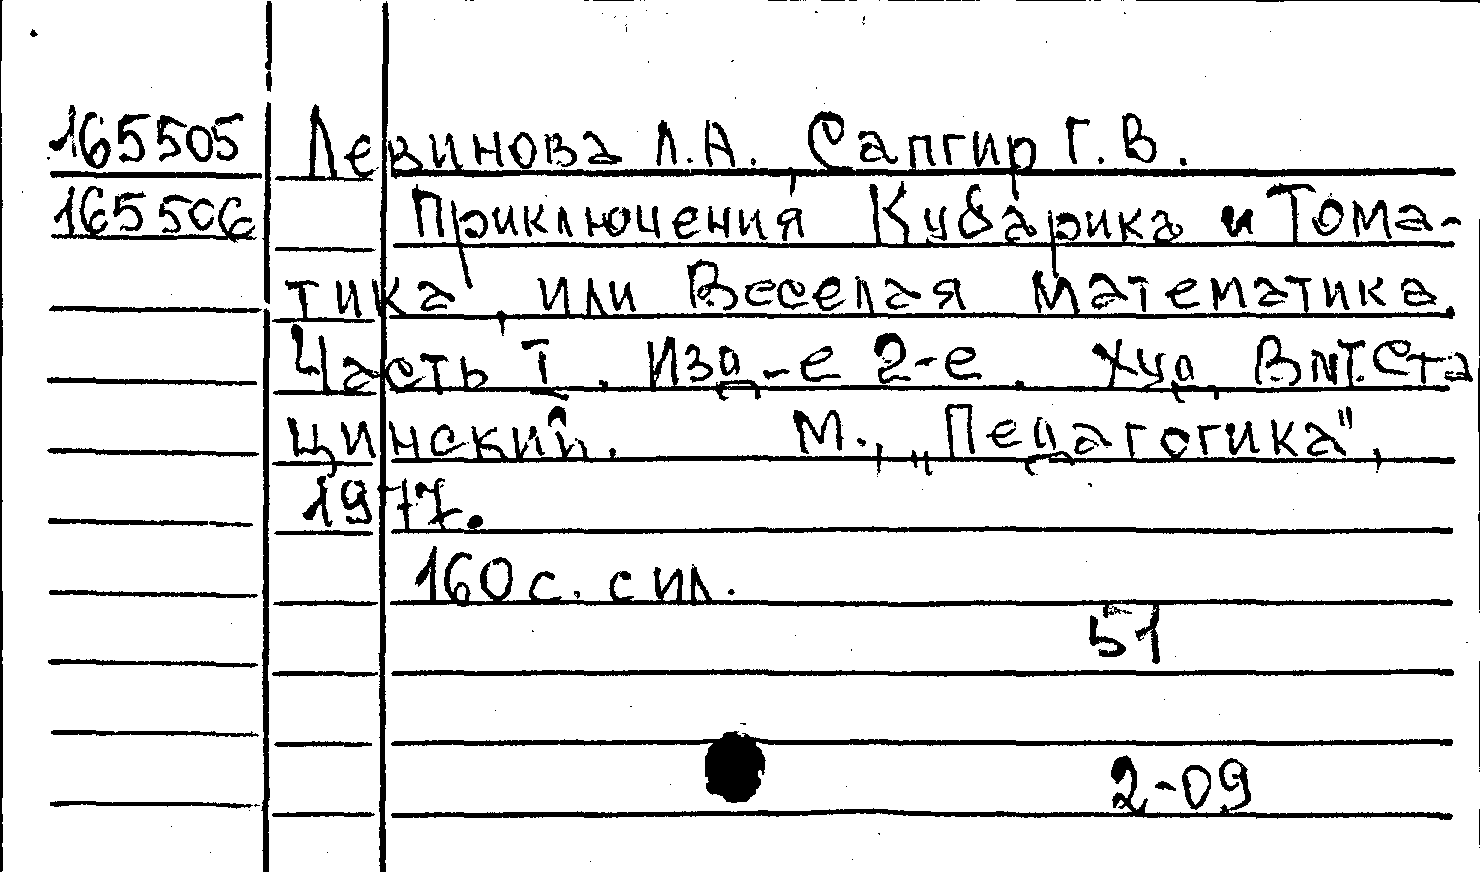 165505 Левинова Л.А., Сапгир Г.В.
165506 Приключения Кубарика и Тома-
тика, или Веселая математика.
Часть I. Изд-е 2-е. Худ. В.и Т. Ста
цинский. М., „Педагогика",
1977.
160 с. с ил.
51
2-09